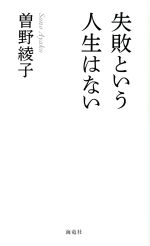 失敗という
人生はない
曽野綾子
Sono Ayako
海竜社